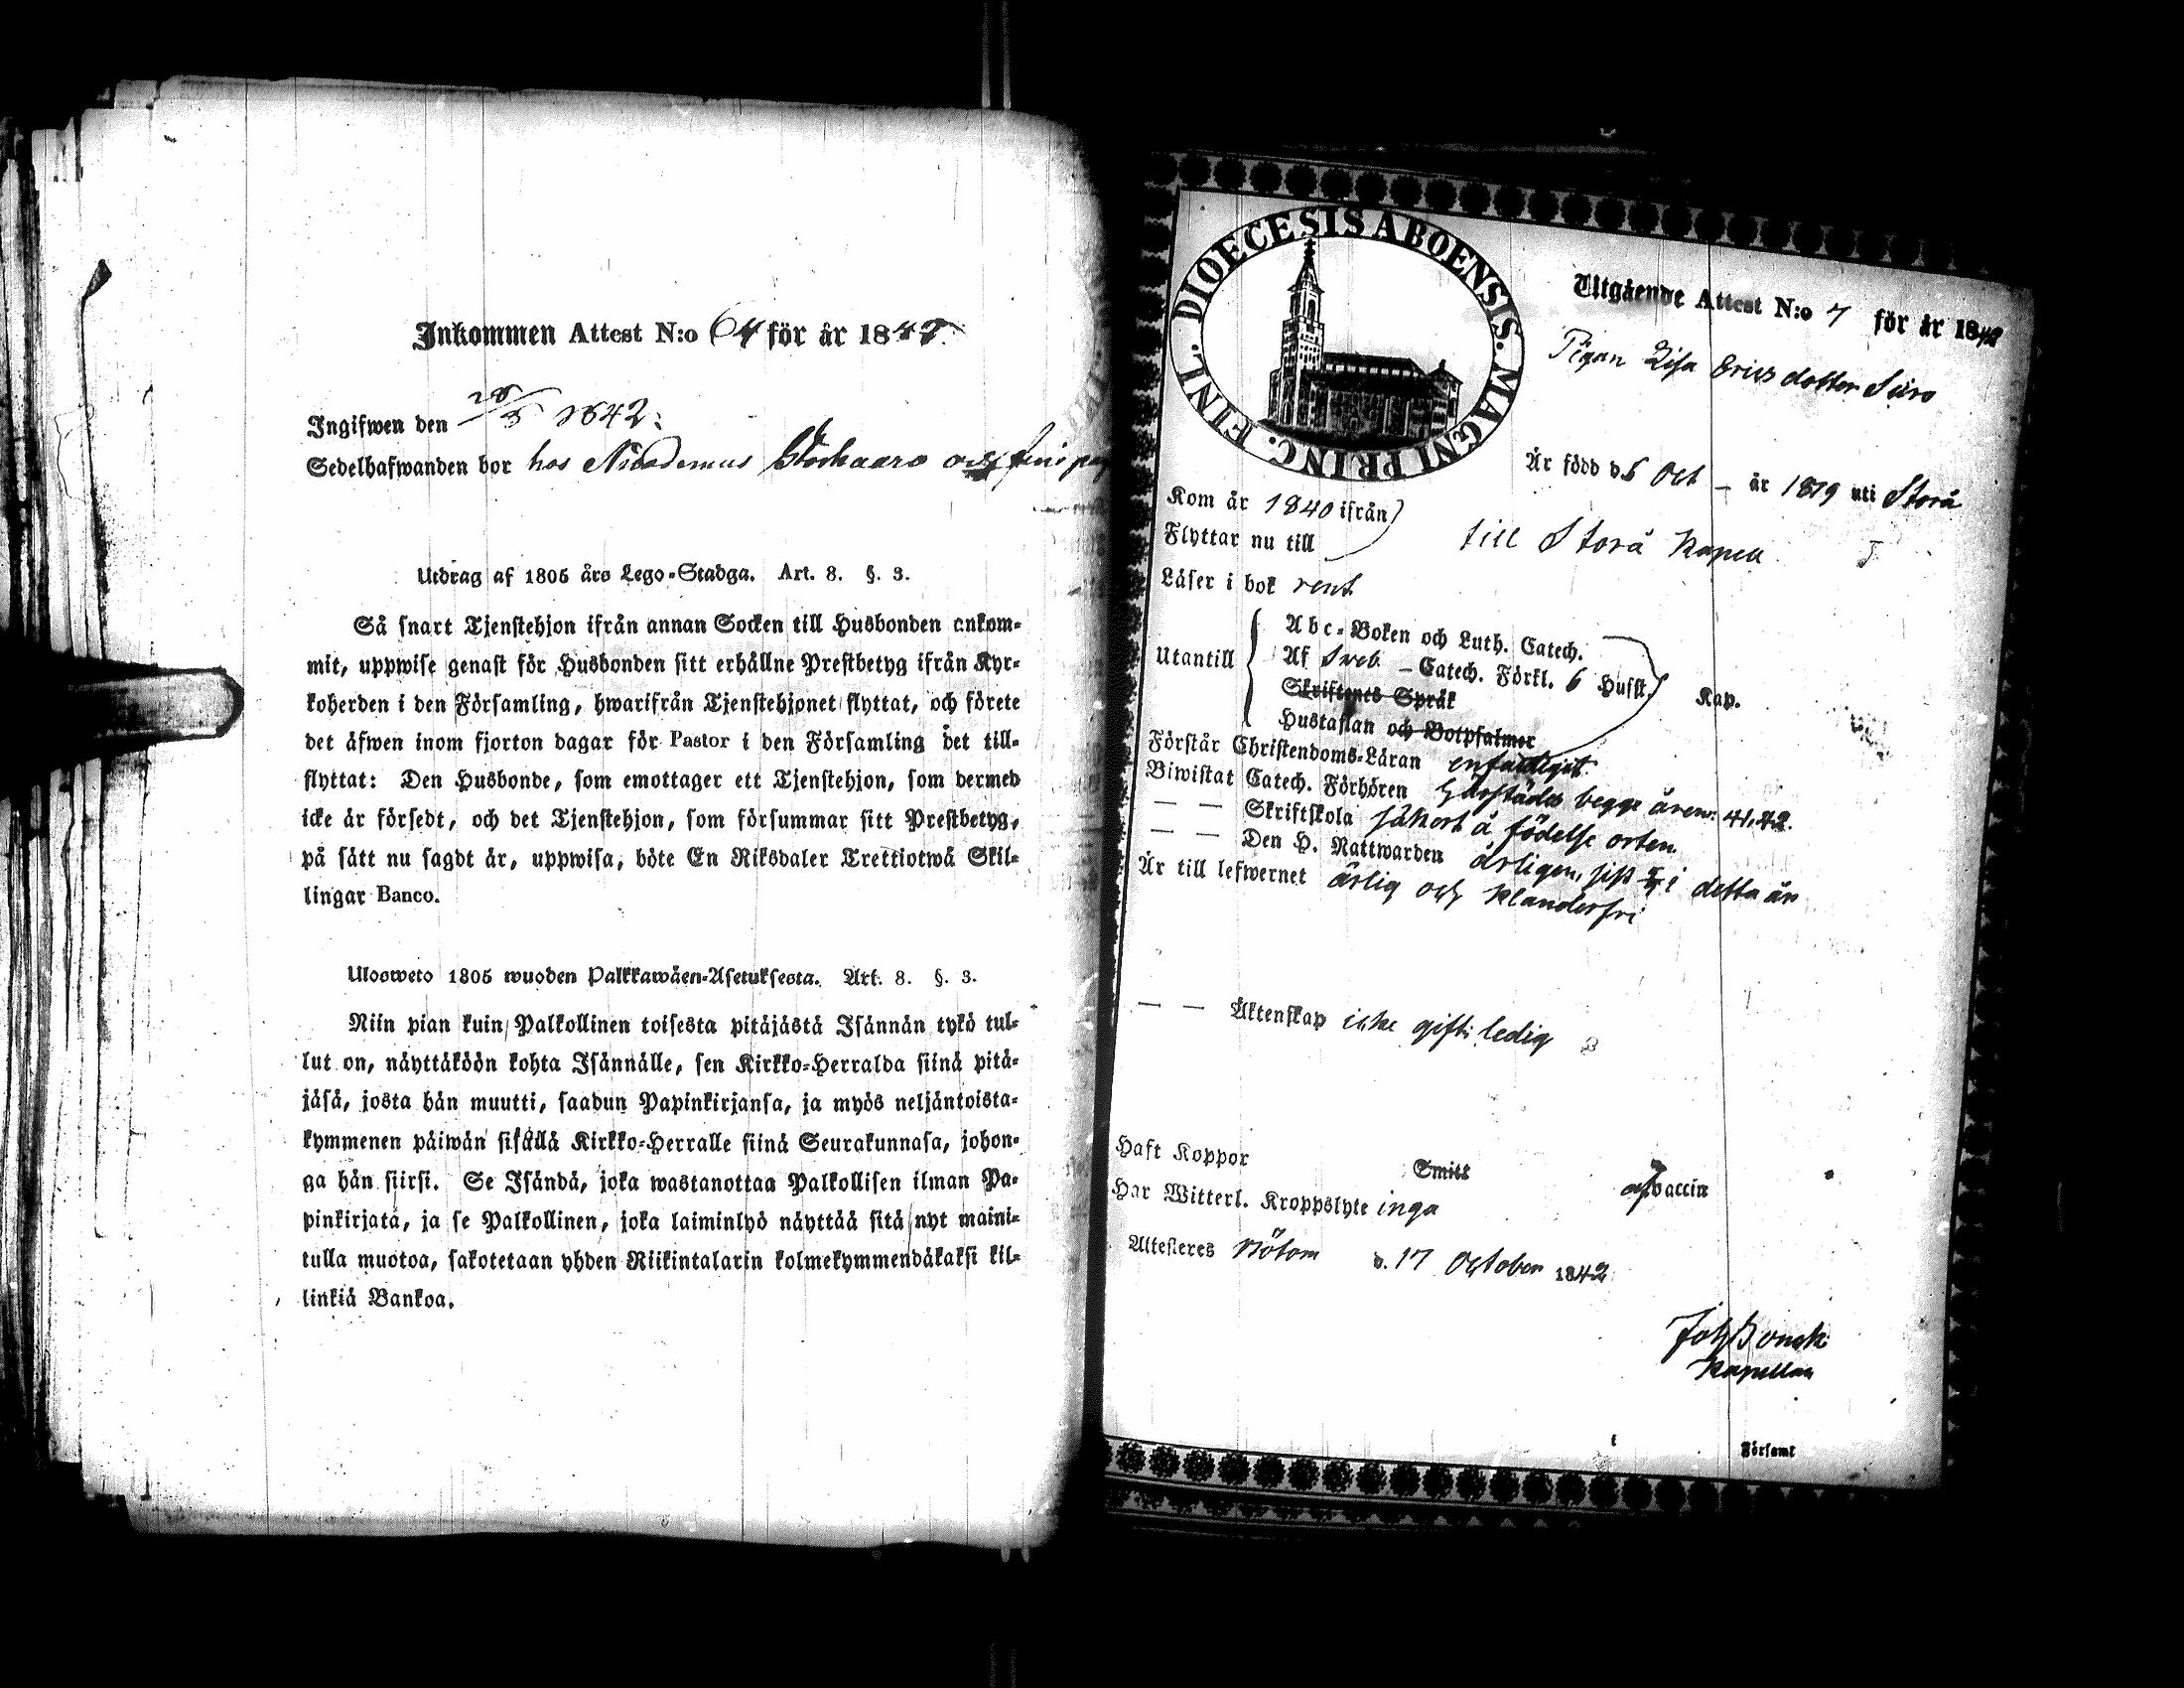 Inkommen Attest N:o 64 för år 1842.
Ingifwen den 1842.
Sedelhafwanden bor hos Nicodemus och
Utdrag af 1805 års Lego-Stadga. Art. 8. §. 3.
Så snart Tjenstehjon ifrån annan Socken till Husbonden ankom-
mit, uppwise genast för Husbonden sitt erhållne Prestbetyg ifrån Kyr-
koherden i den Församling, hwarifrån Tjenstehjonet flyttat, och förete
det äfwen inom fjorton dagar för Pastor i den Församling det till-
flyttat: Den Husbonde, som emottager ett Tjenstehjon, som dermed
icke är försedt, och det Tjenstehjon, som försummar sitt Prestbetyg,
på sätt nu sagdt är, uppwisa, böte En Riksdaler Trettiotwå Skil-
lingar Banco.
Ulosweto 1805 wuoden Palkkawäen-Asetuksesta. Art. 8. §. 3.
Niin pian kuin Palkollinen toisesta pitäjästä Isännän tykö tul-
lut on, näyttäköön kohta Isännälle, sen Kirkko-Herralda siinä pitä-
jäsä, josta hän muutti, saadun Papinkirjansa, ja myös neljäntoista-
kymmenen päiwän sisällä Kirkko-Herralle siinä Seurakunnasa, johon-
ga hän siirsi. Se Isändä, joka wastanottaa Palkollisen ilman Pa-
pinkirjatá, ja se Palkollinen, joka laiminlyö näyttää sitä nyt maini-
tulla muotoa, sakotetaan yhden Riikintalarin kolmekymmendäkaksi kil-
linkiä Bankoa.
DIOECESIS ABOENSIS. MAGNI PRINC. FINL.
Utgående Attest N:o 7 för år 1842
Pigan Lisa Ericsdotter
Är född d. 5 Oct – år 1819 uti Storå
Kom år 1840 ifrån
Flyttar nu till
till Storå Kapell
Läser i bok rent
Utantill
Abc-Boken och Luth. Catech.
Af Sveb. – Catech. Förkl. 6 Husst. Kap.
Skriftents Språk
Hustaflan och Botpsalmer
Förstår Christendoms-Läran enfaldigit
Biwistat Catech. Förhören härstädes begge åren: 41, 42.
— — Skriftskola säkert å födelse orten
— — Den H. Nattwarden årligen, sist i detta år
Är till lefwernet ärlig och klanderfri
— — Äktenskap icke gift: ledig
Haft Koppor Smitt vaccin
Har Witterl. Kroppslyte inga
Attesteres Bötom d. 17 October 1842
Joh
Kapellan
Församl